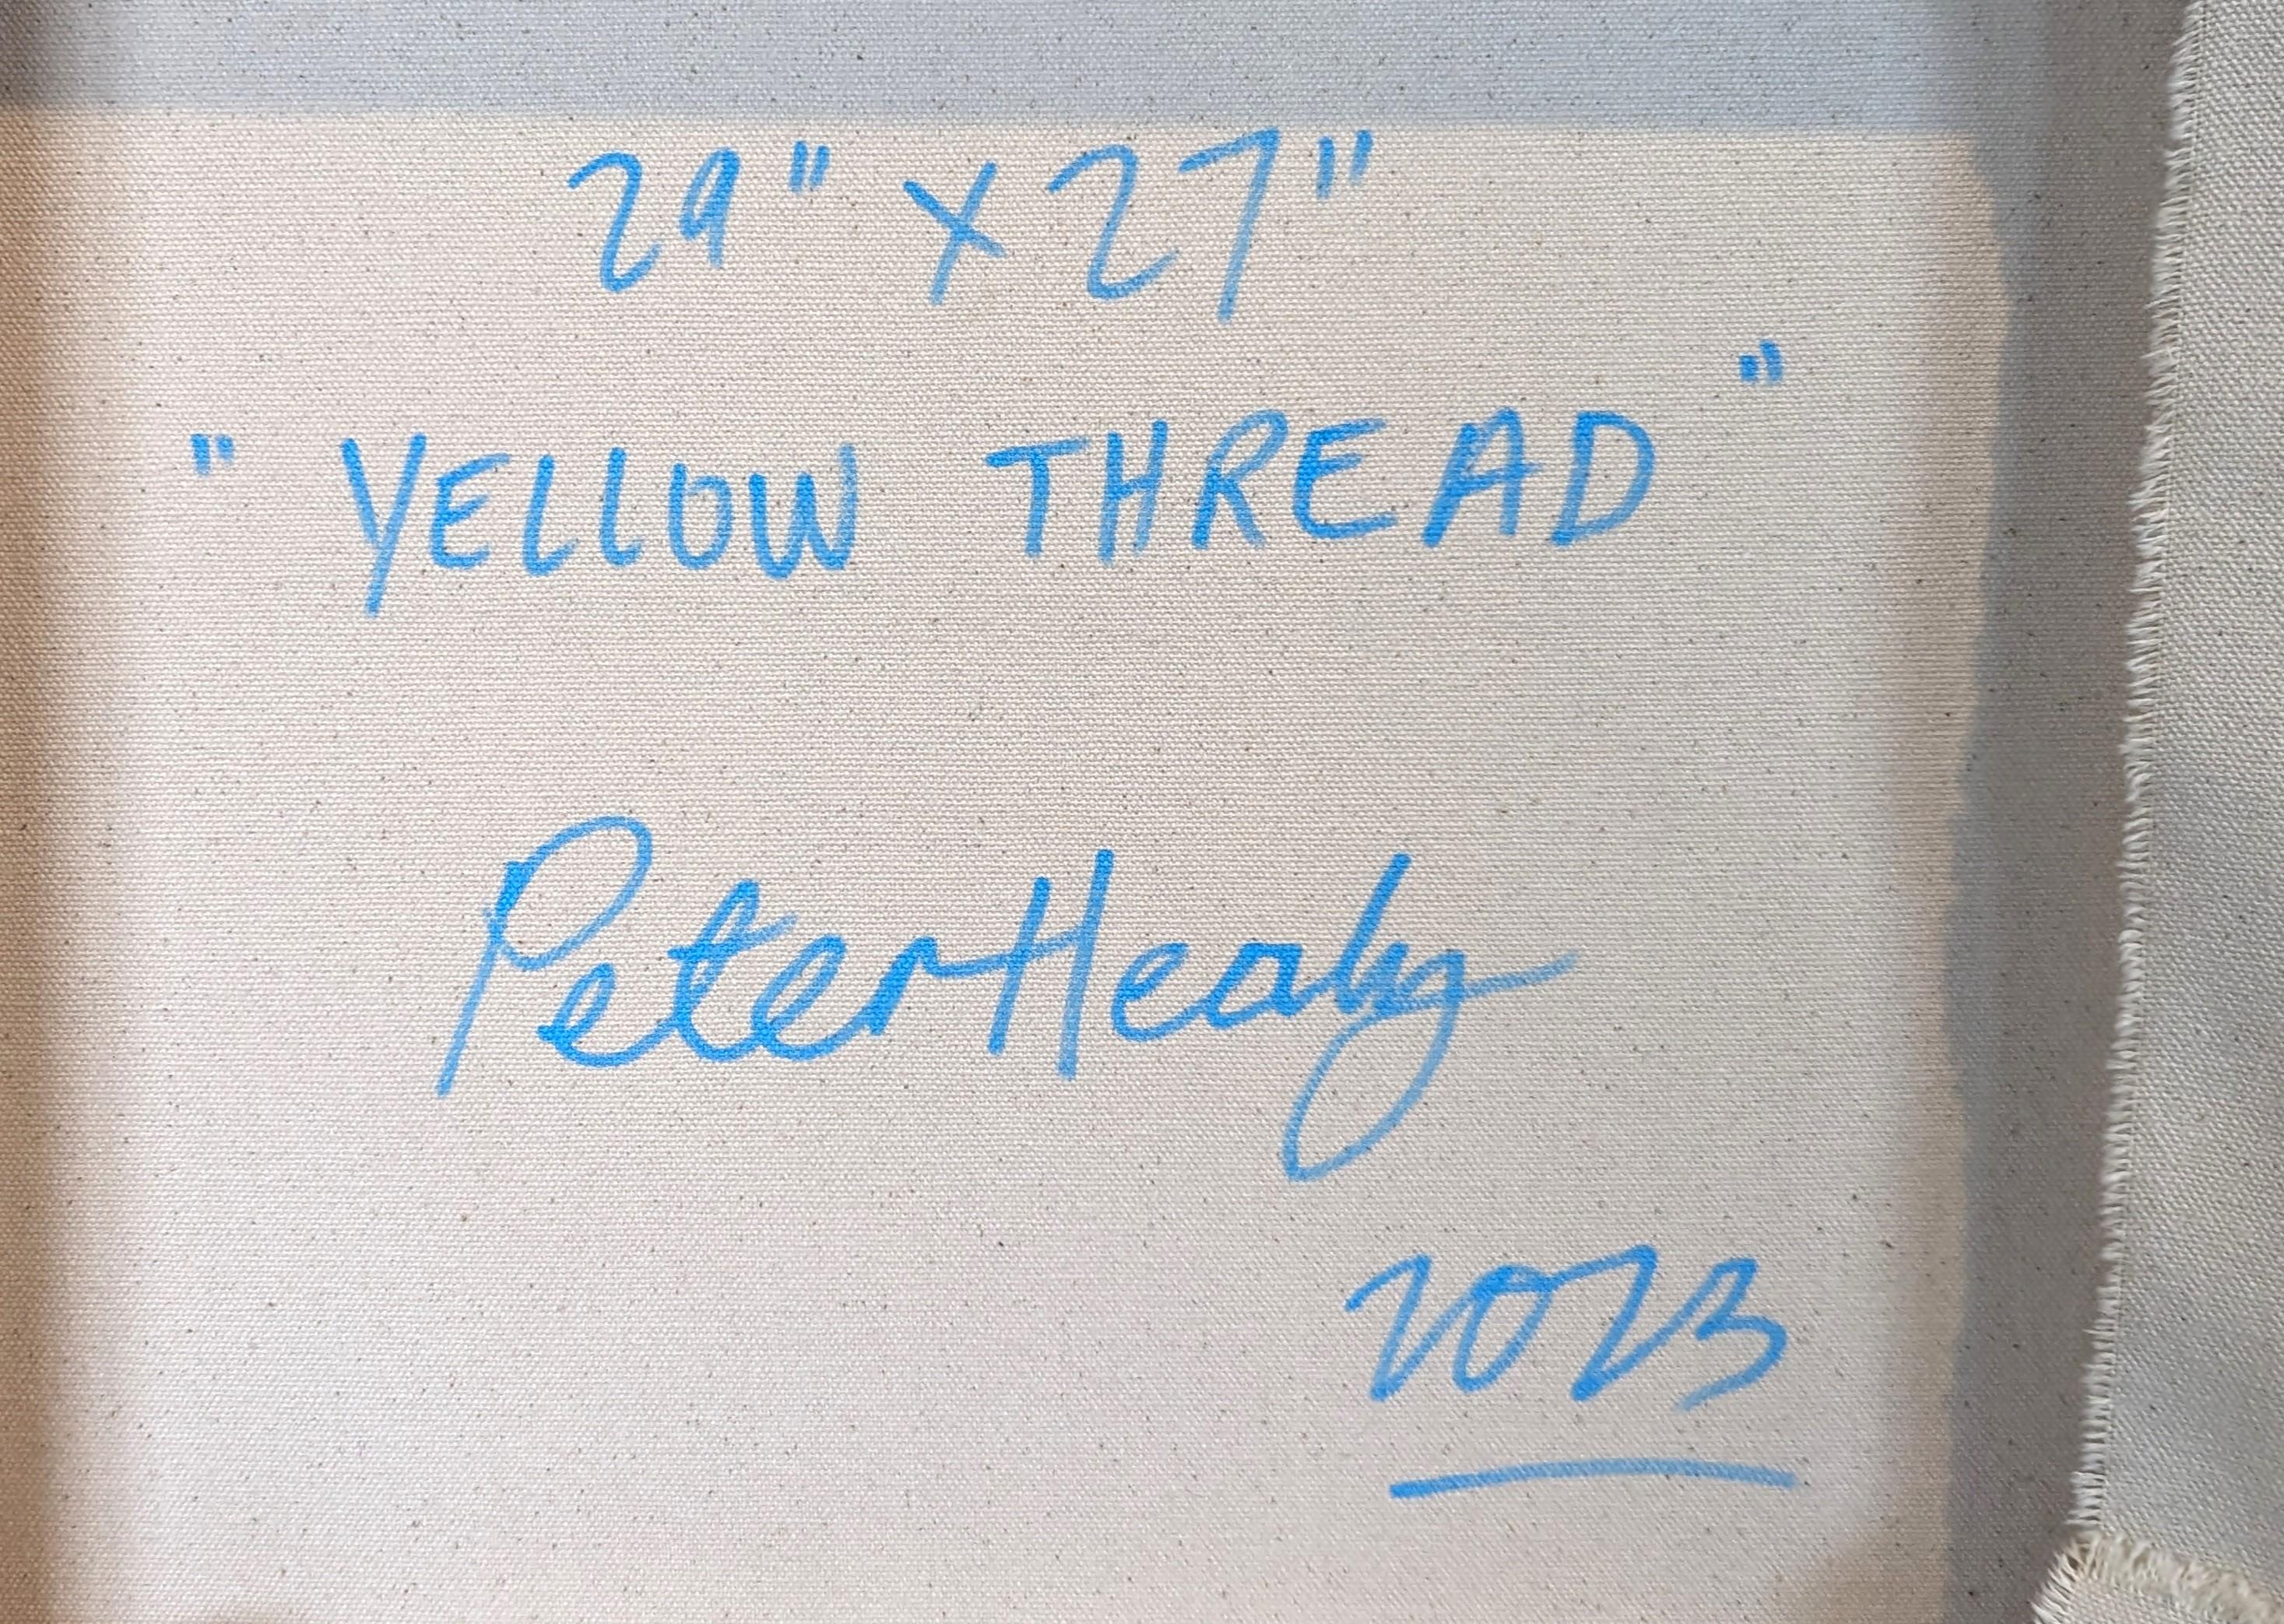 29" x 27"
" YELLOW THREAD "
Peter Healy
2023